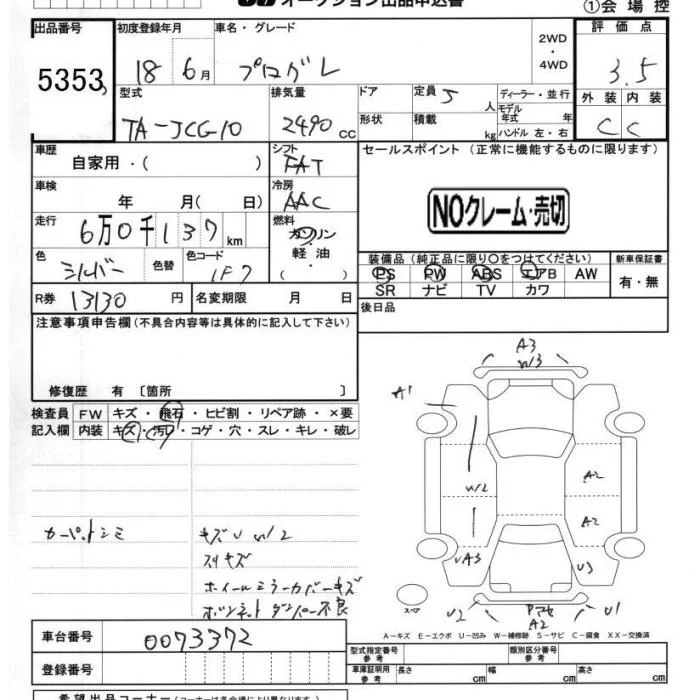 オークション出品申込書 ①会場控
出品番号 初度登録年月 車名・グレード 2WD・4WD 評価点
5353 18年6月 プログレ 3.5
型式 排気量 ドア 定員 5人 ディーラー・並行 外装 内装
TA-JCG10 2490cc 形状 積載 kg モデル年式 年 ハンドル 左・右 C C
車歴 自家用・( ) シフト FAT セールスポイント(正常に機能するものに限ります)
車検 年 月( 日) 冷房 AAC
NOクレーム・売切
走行 6万0千137km 燃料 ガソリン 軽油・( )
色 シルバー 色替 色コード 1F7
装備品(純正品に限り○をつけてください) 新車保証書
PS PW ABS エアB AW 有・無
SR ナビ TV カワ
R券 13130円 名変期限 月 日
後日品
注意事項申告欄(不具合内容等は具体的に記入して下さい)
修復歴 有〔箇所 〕
検査員 FW キズ・飛石・ヒビ割・リペア跡・×要
記入欄 内装 キズ・汚れ・コゲ・穴・スレ・キレ・破レ
A3
W3
A1
A2
W2
A2
UA3
U3
U2
A2
U1
スペア
カーペットシミ キズU W2
スリキズ
ホイールミラーカバーキズ
ボンネットダンパー不良
A-キズ E-エクボ U-凹み W-補修跡 S-サビ C-腐食 XX-交換済
車台番号 0073372
登録番号
型式指定番号 参考 類別区分番号 参考
車庫証明用 参考 長さ cm 幅 cm 高さ cm
希望出品コーナー(コーナーは各会場により異なります)